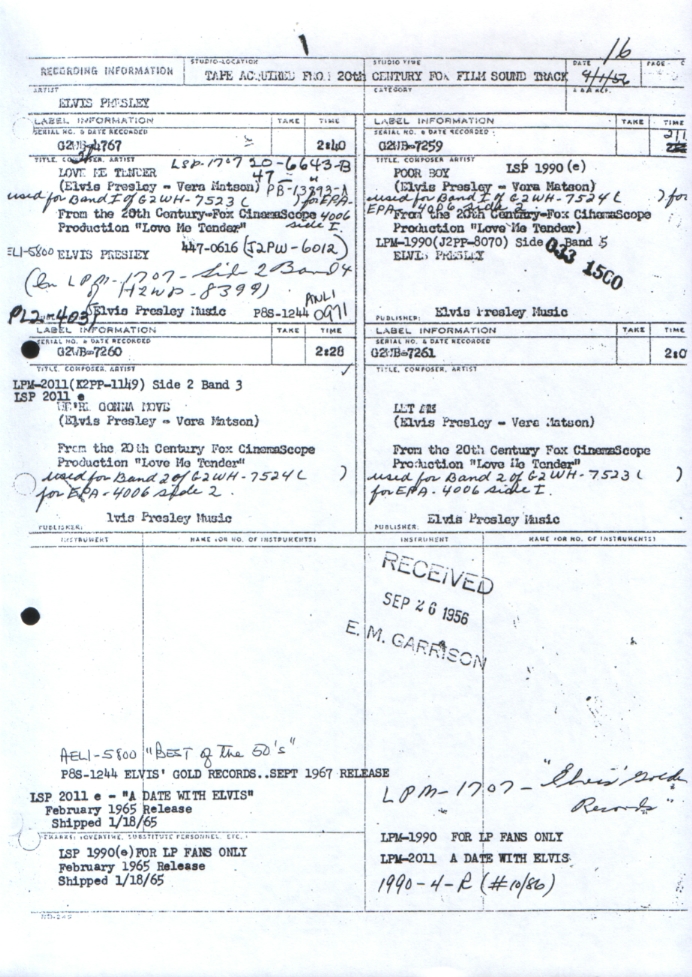 1
16
RECORDING INFORMATION
STUDIO-LOCATION
TAPE ACQUIRED FROM 20th CENTURY FOX FILM SOUND TRACK
STUDIO TIME
DATE
PAGE
ARTIST
ELVIS PRESLEY
CATEGORY
LABEL INFORMATION TAKE TIME
SERIAL NO. & DATE RECORDED
G2WB-4767 2:40
TITLE, COMPOSER, ARTIST
LSP-1707 20-6643-B
LOVE ME TENDER 47 "
(Elvis Presley - Vera Matson) PB-13893-A
used for Band I of G2WH-7523 ( ) for EPA-
From the 20th Century-Fox CinemaScope 4006
Production "Love Me Tender" side I.
447-0616 (J2PW-6012)
ELVIS PRESLEY
(In LPM-1707-Side 2 Band 4
of H2WP-8399)
ANL1
0971
Elvis Presley Music P8S-1244
LABEL INFORMATION TAKE TIME
SERIAL NO. & DATE RECORDED
G2WB-7259
TITLE, COMPOSER ARTIST
POOR BOY LSP 1990 (e)
(Elvis Presley - Vera Matson)
used for Band I of G2WH-7524 ( ) for
EPA-4006 side 2
From the 20th Century-Fox CinemaScope
Production "Love Me Tender")
LPM-1990(J2PP-8070) Side 2 Band 5
ELVIS PRESLEY
PUBLISHER: Elvis Presley Music
LABEL INFORMATION TAKE TIME
SERIAL NO. & DATE RECORDED
G2WB-7260 2:28
TITLE, COMPOSER, ARTIST
LPM-2011(K2PP-1149) Side 2 Band 3
LSP 2011 e
WE'RE GONNA MOVE
(Elvis Presley - Vera Matson)
From the 20th Century Fox CinemaScope
Production "Love Me Tender"
used for Band 2 of G2WH-7524 ( )
for EPA-4006 side 2.
PUBLISHER: lvis Presley Music
LABEL INFORMATION TAKE TIME
SERIAL NO. & DATE RECORDED
G2WB-7261 2:0
TITLE, COMPOSER, ARTIST
LET ME
(Elvis Presley - Vera Matson)
From the 20th Century Fox CinemaScope
Production "Love Me Tender"
used for Band 2 of G2WH-7523 ( )
for EPA-4006 side I.
PUBLISHER: Elvis Presley Music
INSTRUMENT NAME (OR NO. OF INSTRUMENTS) INSTRUMENT NAME (OR NO. OF INSTRUMENTS)
RECEIVED
SEP 26 1956
E. M. GARRISON
AEL1-5800 "BEST of the 50's"
P8S-1244 ELVIS' GOLD RECORDS..SEPT 1967 RELEASE
LPM-1707- "Elvis' Golden
Records"
LSP 2011 e - "A DATE WITH ELVIS"
February 1965 Release
Shipped 1/18/65
REMARKS: (OVERTIME, SUBSTITUTE PERSONNEL, ETC.)
LSP 1990(e)FOR LP FANS ONLY
February 1965 Release
Shipped 1/18/65
LPM-1990 FOR LP FANS ONLY
LPM-2011 A DATE WITH ELVIS
1990-4-R (#10/86)